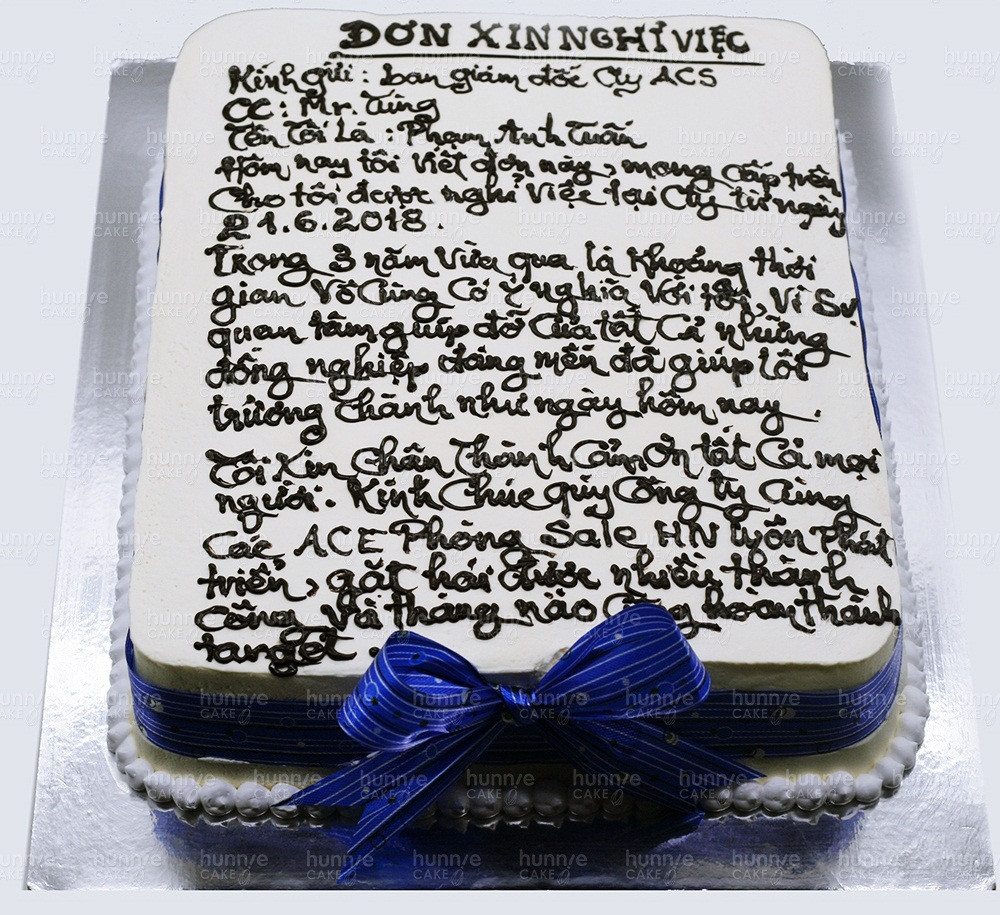 ĐƠN XIN NGHỈ VIỆC
Kính gửi : ban giám đốc Cty ACS
CC : Mr. Tùng
Tên Tôi Là : Phạm Anh Tuấn
Hôm nay tôi viết đơn này, mong cấp trên
Cho tôi được nghỉ việc tại Cty từ ngày
21.6.2018.
Trong 3 năm vừa qua là khoảng thời
gian vô Cùng Có ý nghĩa với tôi, Vì Sự
quan tâm, giúp đỡ Của tất Cả những
đồng nghiệp đáng mến đã giúp tôi
trưởng thành như ngày hôm nay.
Tôi Xin Chân Thành Cảm Ơn tất Cả mọi
người. Kính Chúc quý Công ty Cùng
Các ACE Phòng Sale HN luôn Phát
triển, gặt hái được nhiều thành
Công Và tháng nào Cũng hoàn thành
target.
hunnie
CAKE